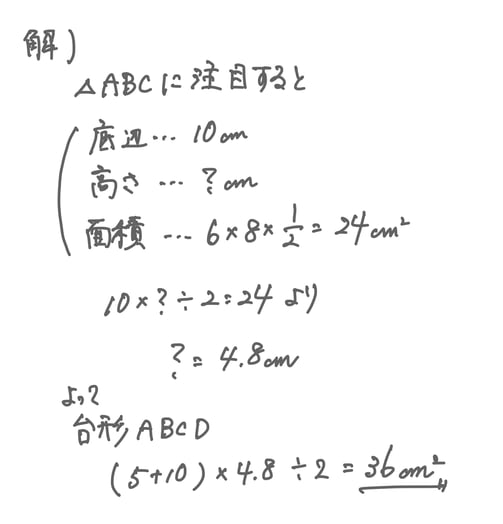 解)
△ABCに注目すると
底辺… 10cm
高さ … ?cm
面積 … 6×8×1/2=24cm²
10×?÷2=24 より
?=4.8cm
よって
台形ABCD
(5+10)×4.8÷2=36cm²